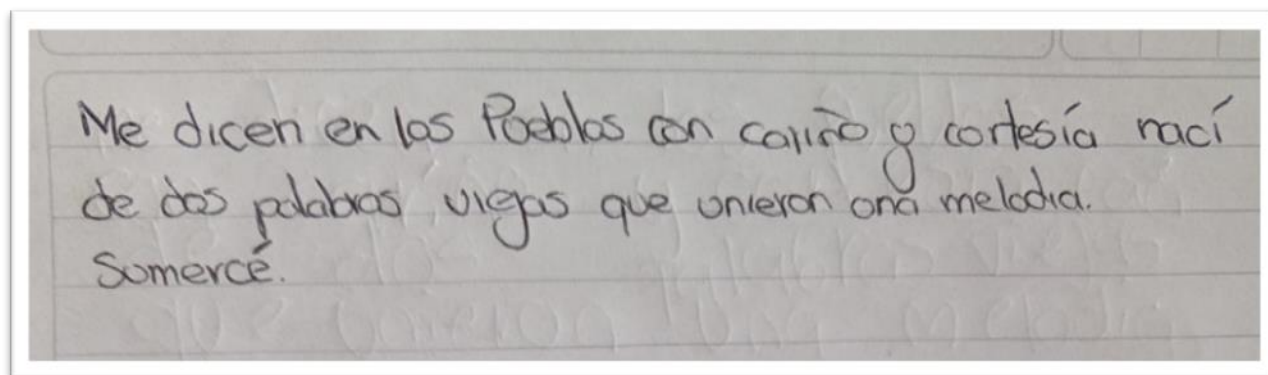 Me dicen en los Pueblos con cariño y cortesía nací
de dos palabras viejas que unieron una melodia.
Sumercé.